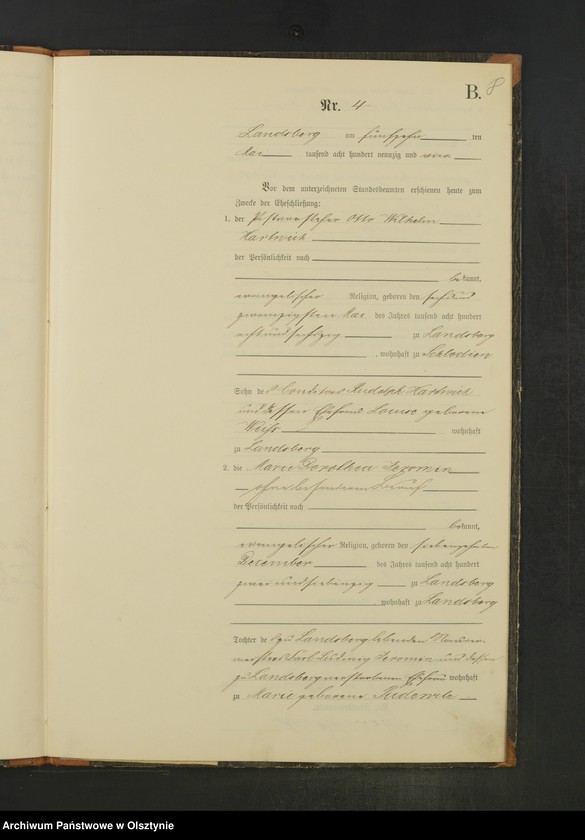 B. 8
Nr. 4
Landsberg am fünfzehn ten
Mai tausend acht hundert neunzig und vier
Vor dem unterzeichneten Standesbeamten erschienen heute zum
Zwecke der Eheschließung:
1. der Otto Wilhelm
Hartwich
der Persönlichkeit nach
bekannt,
evangelischer Religion, geboren den sechsund
zwanzigsten Mai des Jahres tausend acht hundert
achtundsechzig zu Landsberg
, wohnhaft zu Schlodien
Sohn des Conditors Rudolph Hartwich
und dessen Ehefrau Louise geborene
wohnhaft
zu Landsberg
2. die Marie Dorothea Jeromin
ohne besonderen Beruf
der Persönlichkeit nach
bekannt,
evangelischer Religion, geboren den siebenzehnten
December des Jahres tausend acht hundert
zwei und siebenzig zu Landsberg
, wohnhaft zu Landsberg
Tochter des zu Landsberg lebenden Maurer
meisters Carl Ludwig Jeromin und dessen
zu Landsberg verstorbenen Ehefrau wohnhaft
zu Marie geborene
Archiwum Państwowe w Olsztynie